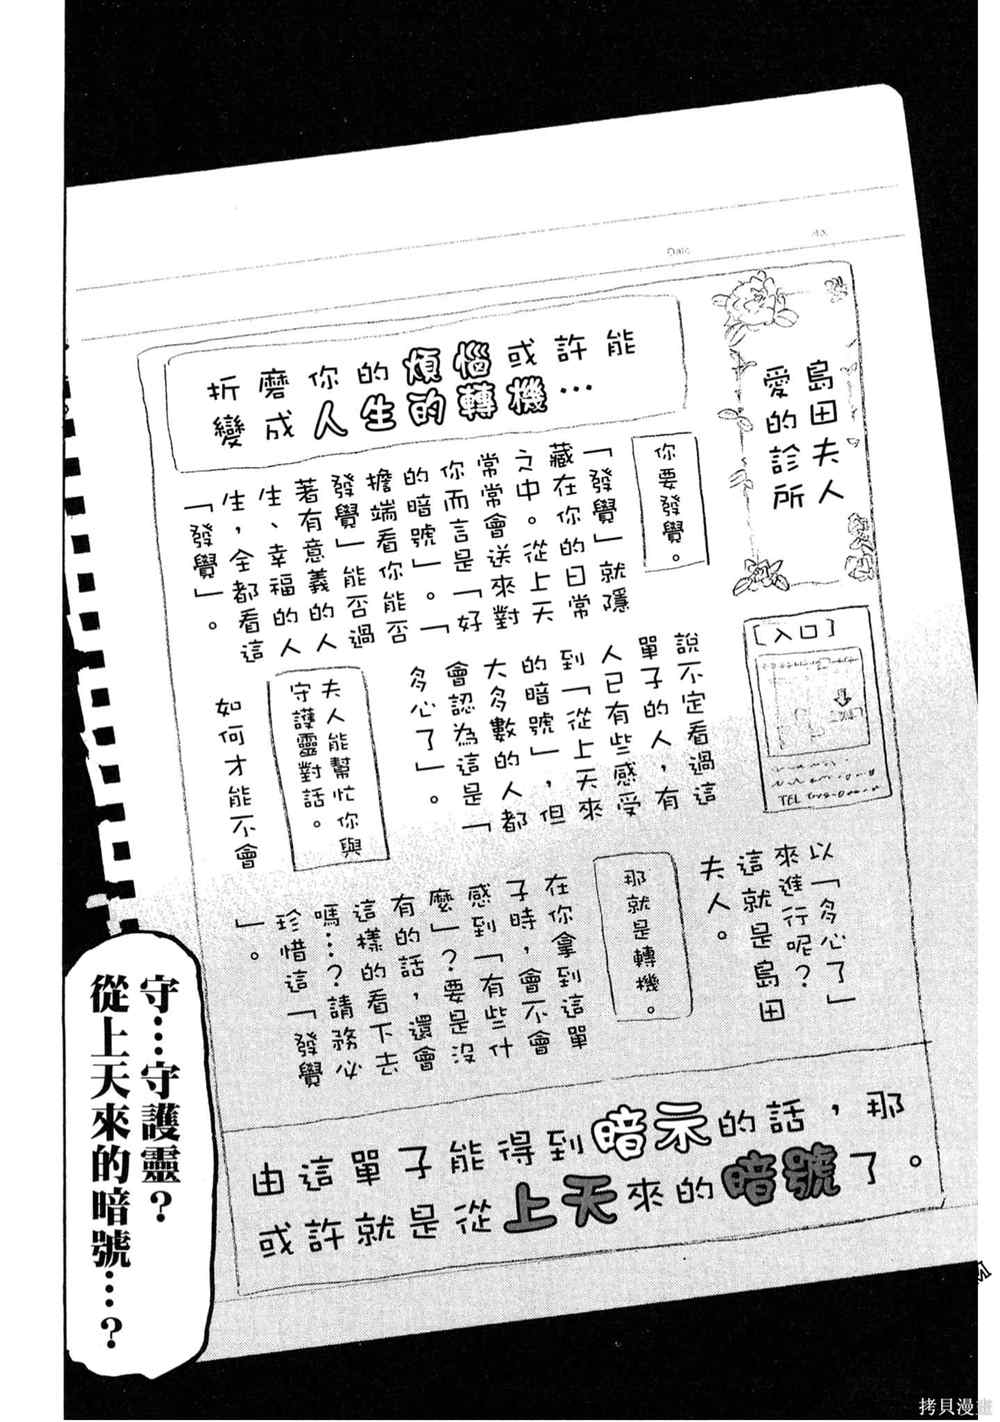 Date
島田夫人
愛的診所
[入口]
TEL
折磨你的煩惱或許能
變成人生的轉機…
你要發覺。
「發覺」就隱
藏在你的日常
之中。從上天
常常會送來對
你而言是「好
的暗號」。「
擔端看你能否
發覺」能否過
著有意義的人
生、幸福的人
生,全都看這
「發覺」。
說不定看過這
單子的人,有
人已有些感受
到「從上天來
的暗號」,但
大多數的人都
會認為這是「
多心了」。
夫人能幫忙你與
守護靈對話。
如何才能不會
以「多心了」
來進行呢?
這就是島田
夫人。
那就是轉機。
在你拿到這單
子時,會不會
感到「有些什
麼」?要是沒
有的話,還會
這樣的看下去
嗎…?請務必
珍惜這「發覺
」。
由這單子能得到暗示的話,那
或許就是從上天來的暗號了。
守…守護靈?
從上天來的暗號…?
拷貝漫畫